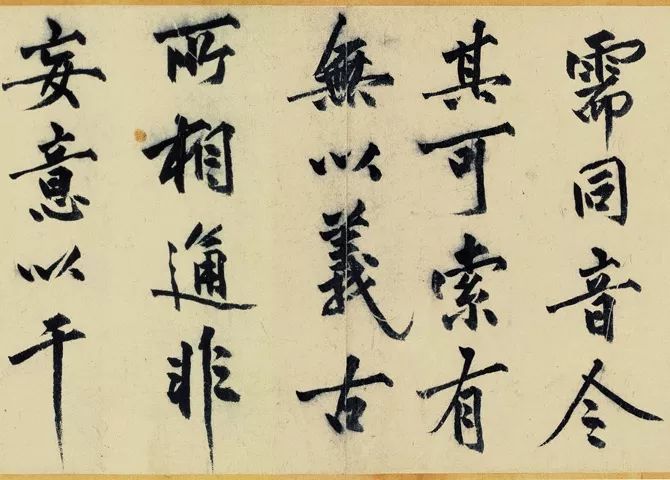 需同音令
其可索有
無以義古
所相通非
妄意以干